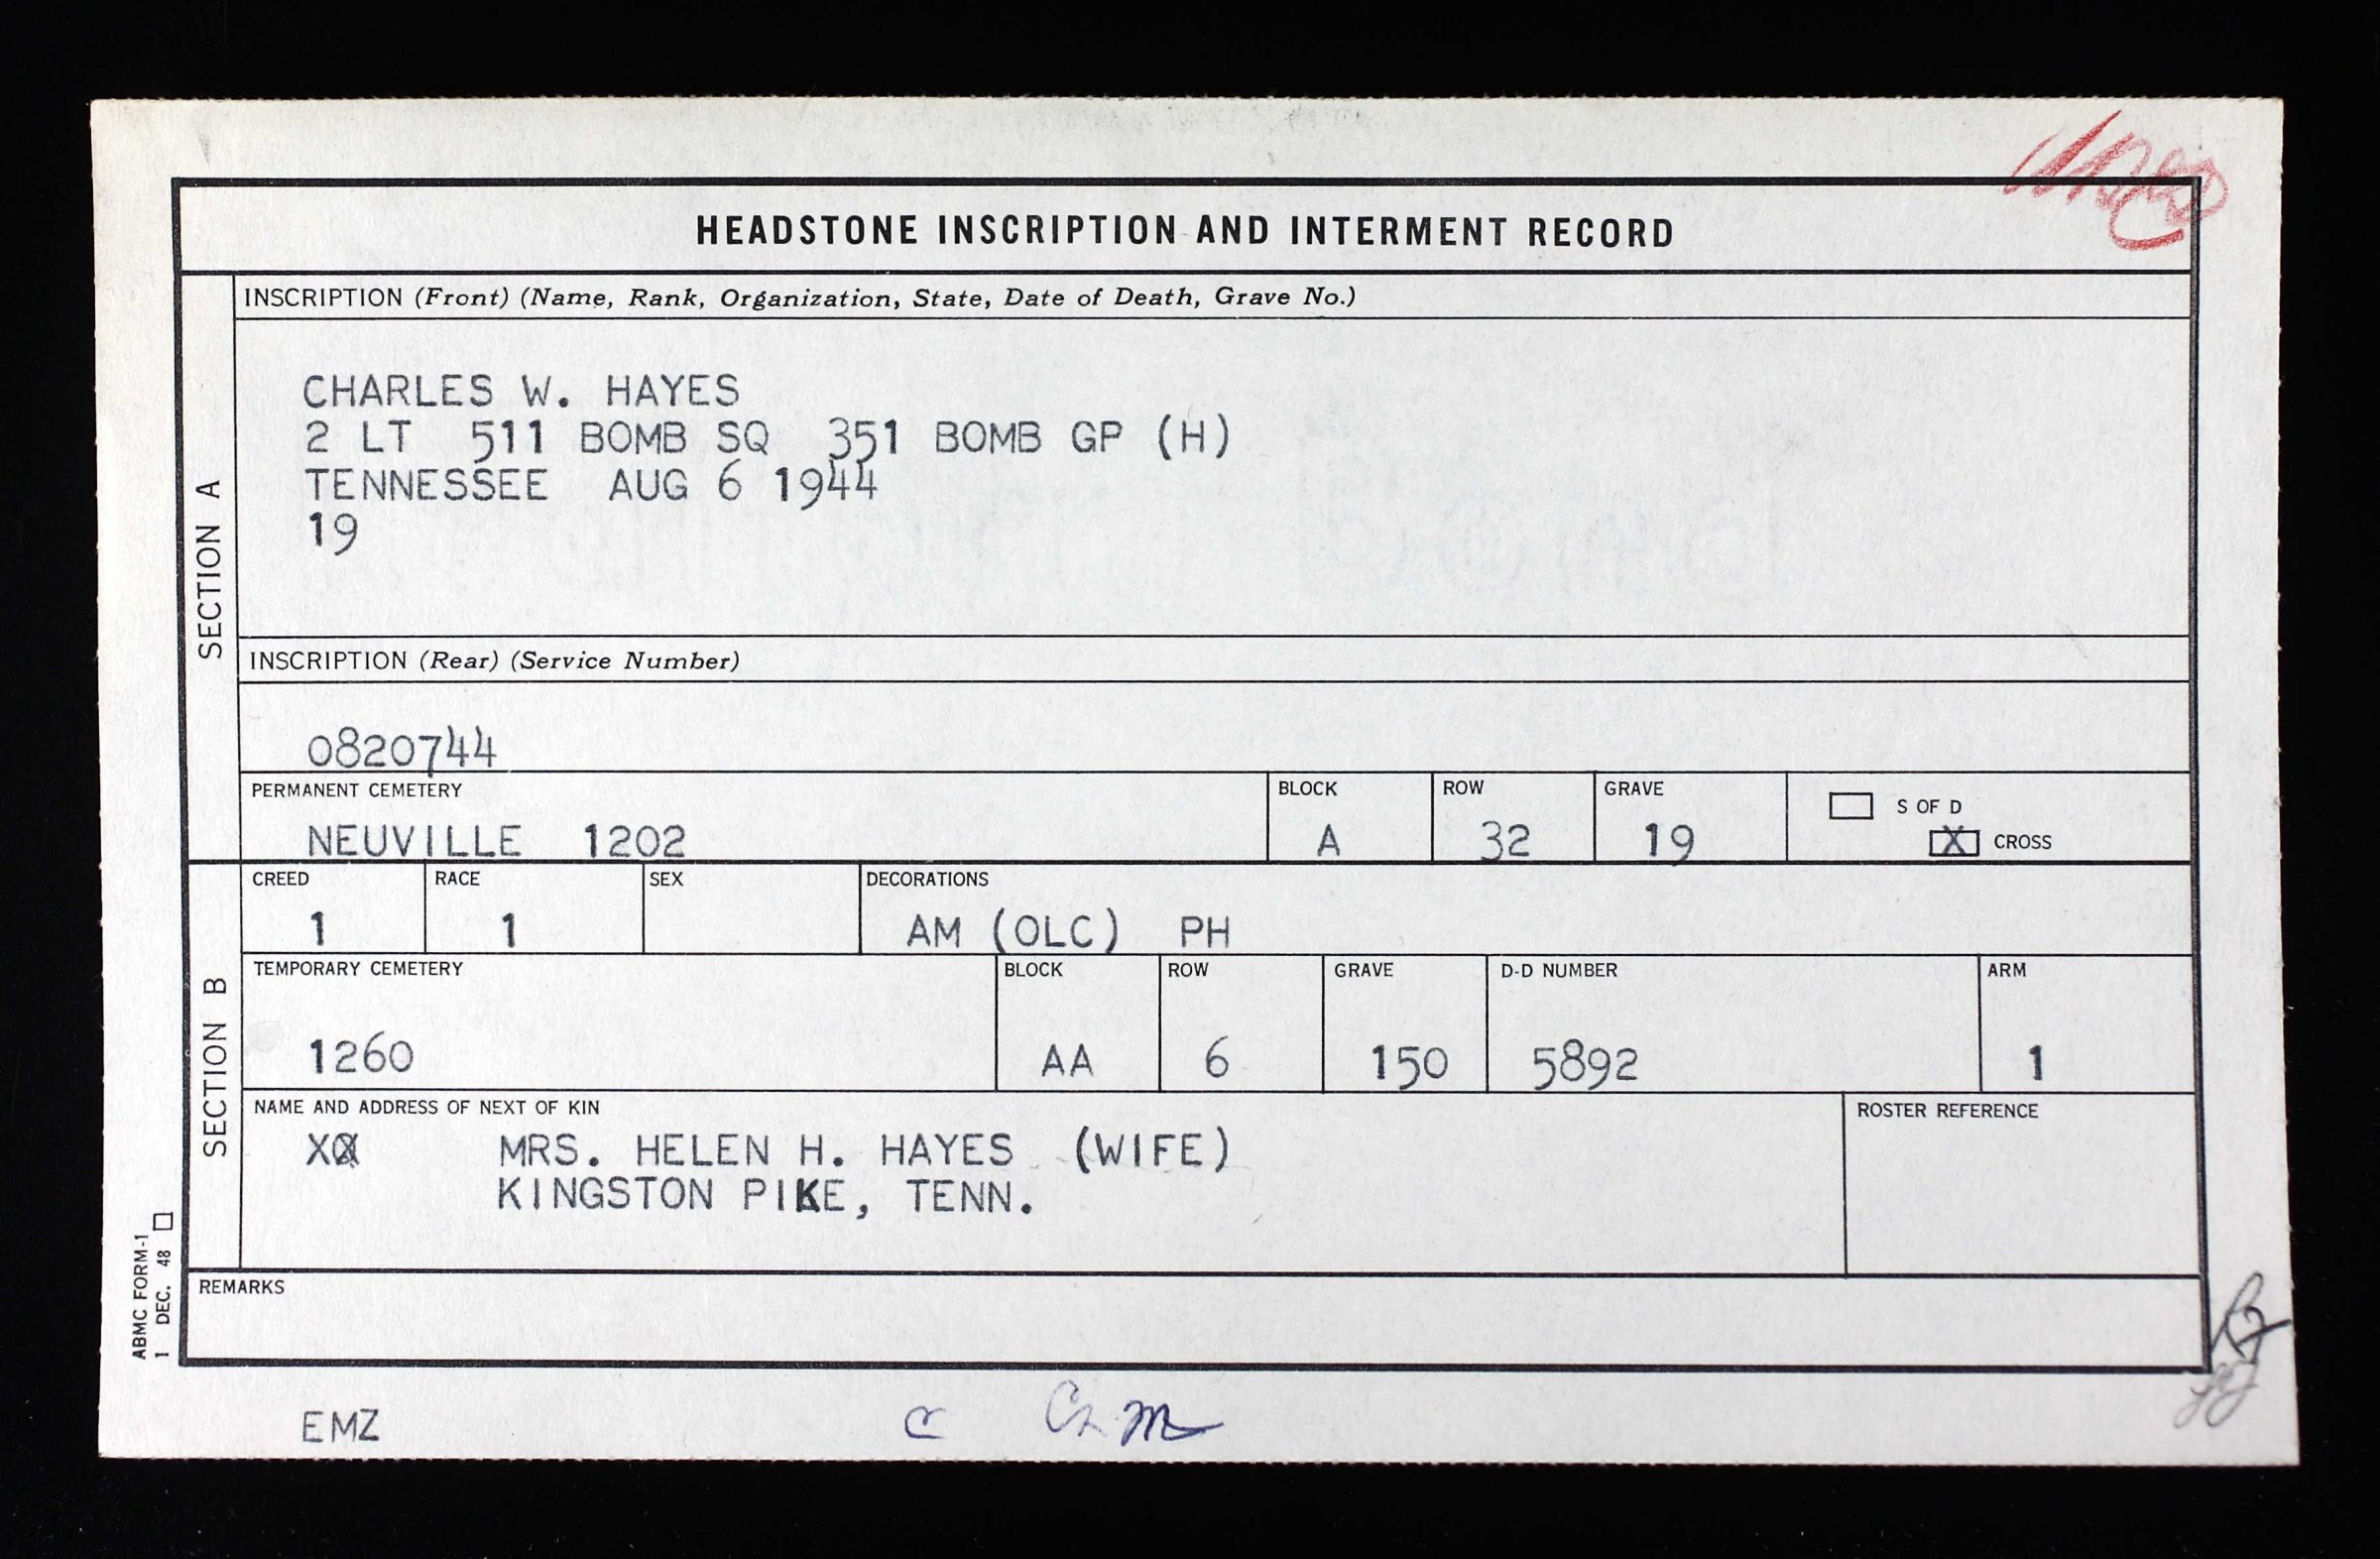 HEADSTONE INSCRIPTION AND INTERMENT RECORD
SECTION A
INSCRIPTION (Front) (Name, Rank, Organization, State, Date of Death, Grave No.)
CHARLES W. HAYES
2 LT 511 BOMB SQ 351 BOMB GP (H)
TENNESSEE AUG 6 1944
19
INSCRIPTION (Rear) (Service Number)
0820744
PERMANENT CEMETERY BLOCK ROW GRAVE S OF D
NEUVILLE 1202 A 32 19 X CROSS
SECTION B
CREED RACE SEX DECORATIONS
1 1 AM (OLC) PH
TEMPORARY CEMETERY BLOCK ROW GRAVE D-D NUMBER ARM
1260 AA 6 150 5892 1
NAME AND ADDRESS OF NEXT OF KIN ROSTER REFERENCE
MRS. HELEN H. HAYES (WIFE)
KINGSTON PIKE, TENN.
REMARKS
ABMC FORM-1
1 DEC. 48
EMZ